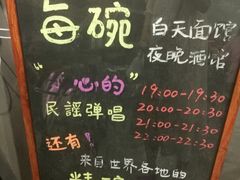 每碗 白天面馆
夜晚酒馆
"心的"
民謡弹唱
19:00-19:30
20:00-20:30
21:00-21:30
22:00-22:30
还有!
来自世界各地的
精